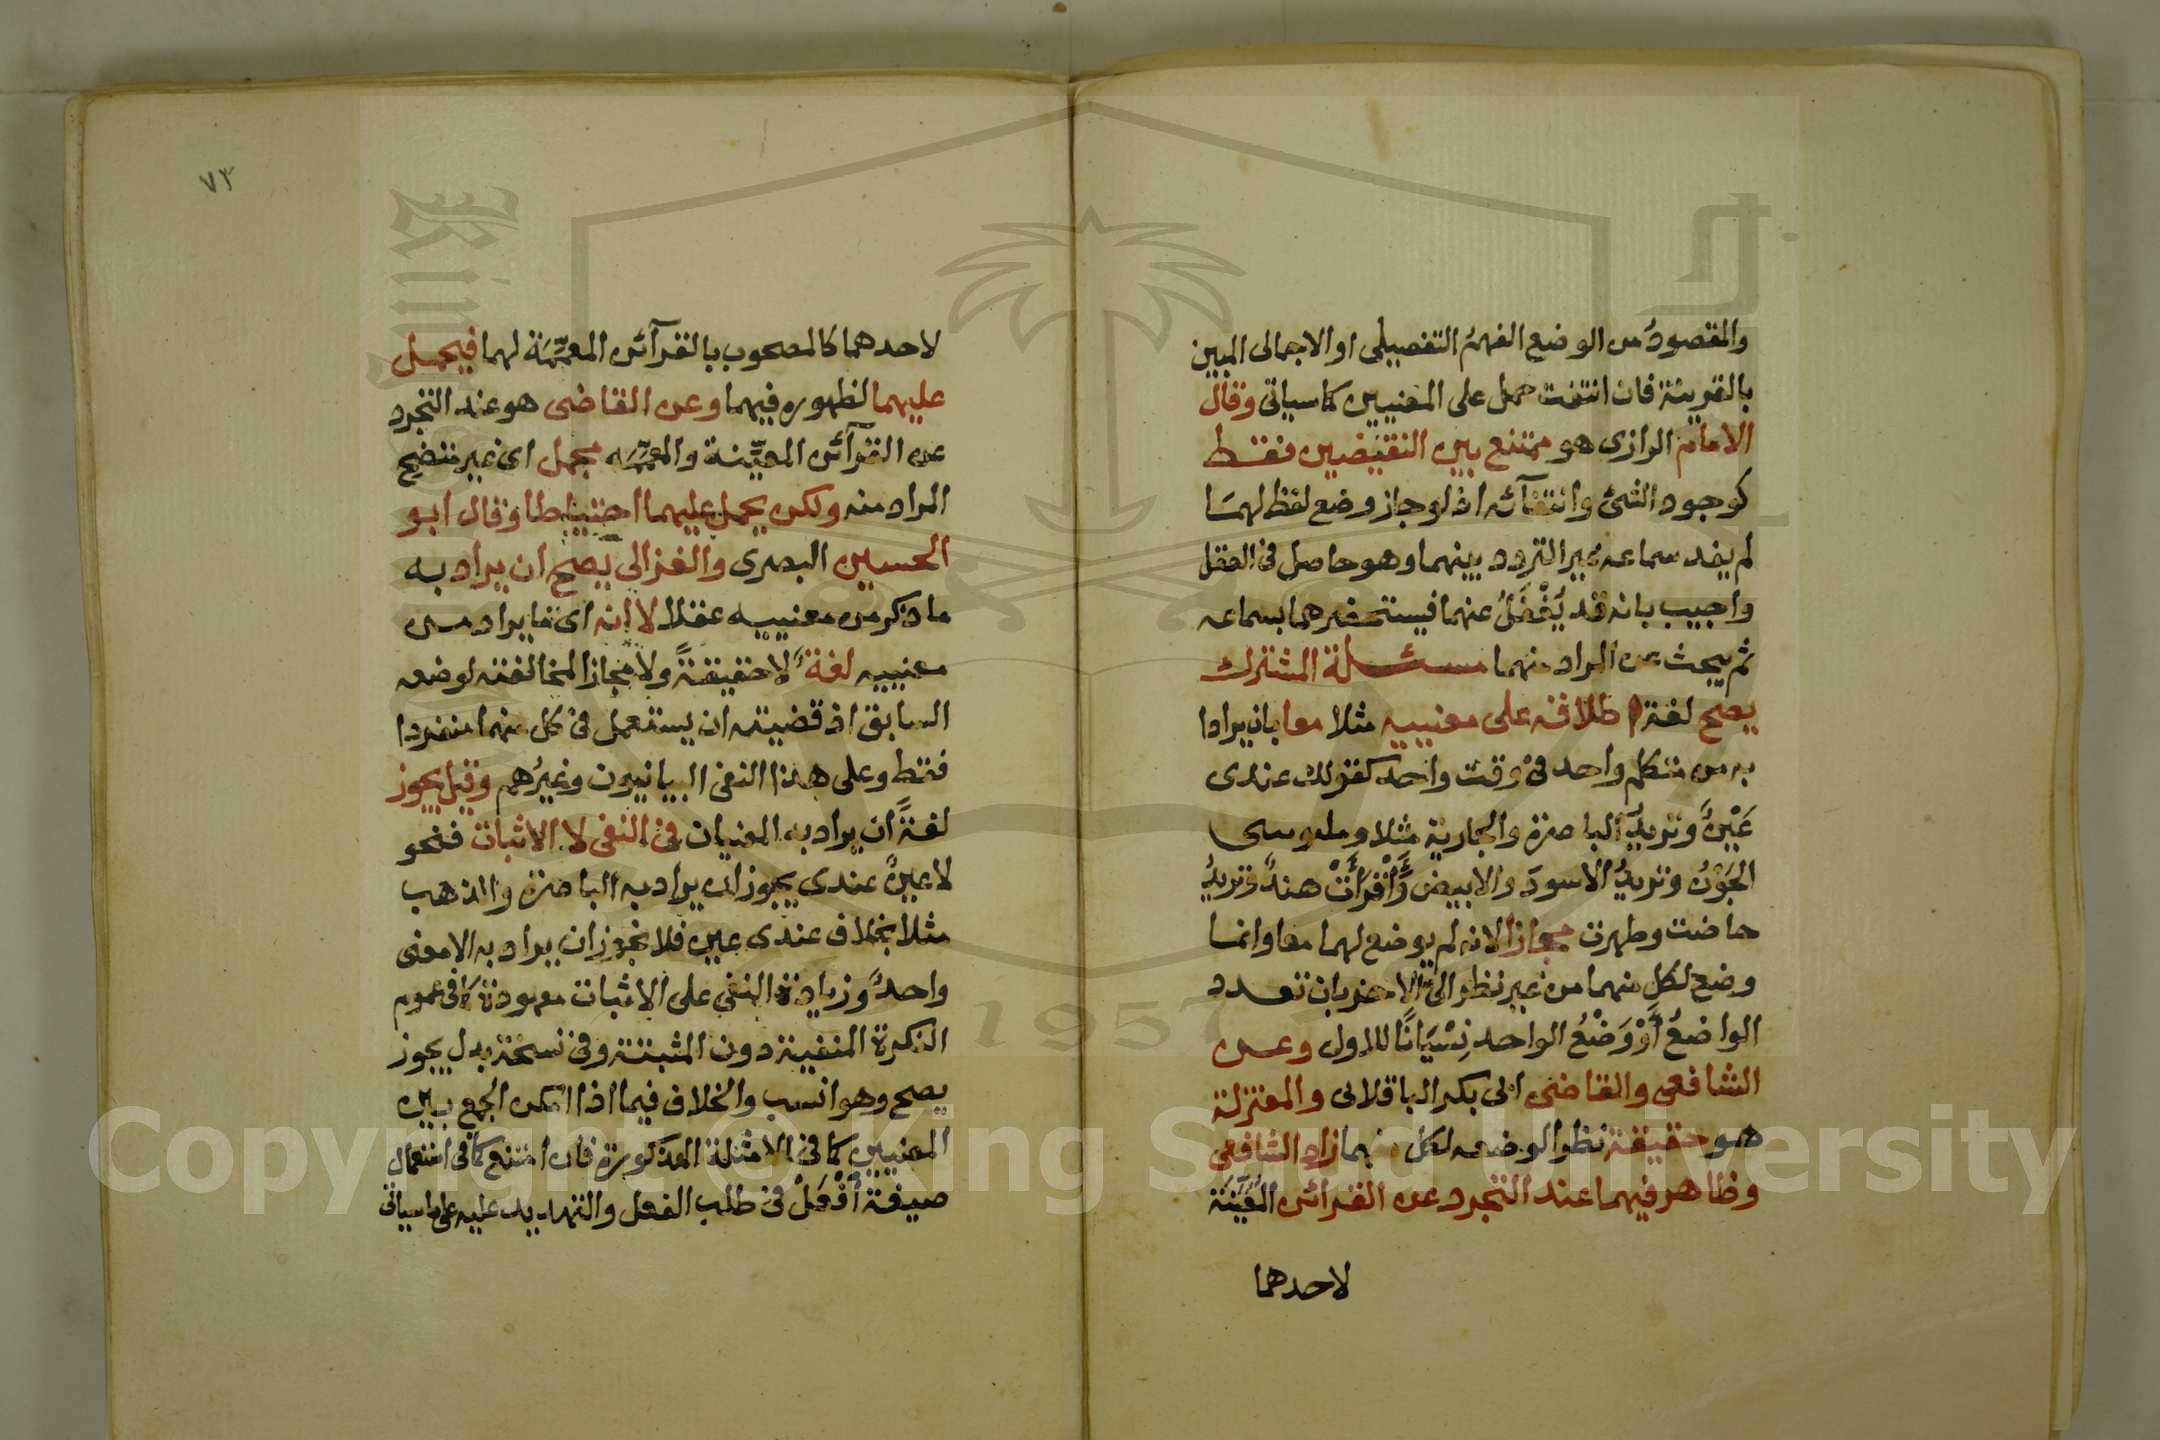 والمقصودُ من الوضع الفهمُ التفصيلي او الاجمالى المبين
بالقرينة فان انتفت حمل على المعنيين كما سياتى وقال
الامام الرازى هو ممتنع بين النقيضين فقط
كوجود الشئ وانتفآئه اذ لو جاز وضع لفظ لهما
لم يفد سماعه غير التردد بينهما وهو حاصل فى العقل
واجيب بانه قد يُغْفَلُ عنهما فيستحضرهما بسماعه
ثم يبحث عن المراد منهما مسئلة المشترك
يصح لغة اطلاقه على معنييه مثلا معا بان يرادا
به من متكلم واحد فى وقت واحد كقولك عندى
عَيْنٌ وتريدُ الباصرة والجارية مثلا وملبوسى
الجَوْنُ وتريدُ الاسودَ والابيض وَأَقْرَأَتْ هندٌ وتريدُ
حاضت وطهرت مجازا لانه لم يوضع لهما معا وانما
وضع لكل منهما من غير نظر الى الاخر بان تعدد
الواضعُ أَوْ وَضْعُ الواحد نِسْيَانًا للاول وعن
الشافعى والقاضى ابى بكر الباقلانى والمعتزلة
هو حقيقة نظرا لوضعه لكل منهما زاد الشافعى
وظاهر فيهما عند التجرد عن القرائن المُعَيِّنَة
لاحدهما
٧٣
لاحدهما كالمصحوب بالقرآئن المعمِّمَة لهما فيحمل
عليهما لظهوره فيهما وعن القاضى هو عند التجرد
عن القرآئن المعيِّنة والمعمِّمه مجمل اى غير متضح
المراد منه ولكن يحمل عليهما احتياطا وقال ابو
الحسين البصرى والغزالى يصح ان يراد به
ما ذكر من معنييه عقلا لا انه اى ما يراد من
معنييه لغةً لا حقيقةً ولا مجازا لمخالفته لوضعه
السابق اذ قضيته ان يستعمل فى كل منهما منفردا
فقط وعلى هذا النفى البيانيون وغيرُهم وقيل يجوز
لغةً ان يراد به المعنيان فى النفى لا الاثبات فنحو
لا عينَ عندى يجوز ان يراد به الباصرة والذهب
مثلا بخلاف عندى عين فلا يجوز ان يراد به الا معنى
واحدٌ وزيادة النفى على الاثبات معهودة كما فى عموم
النكرة المنفية دون المثبتة وفى نسخة بدل يجوز
يصح وهو انسب والخلاف فيما اذا امكن الجمع بين
المعنيين كما فى الامثلة المذكورة فان امتنع كما فى استعمال
صيغة أَفْعَلْ فى طلب الفعل والتهديد عليه على ما سياتى
1957
Copyright © King Saud University